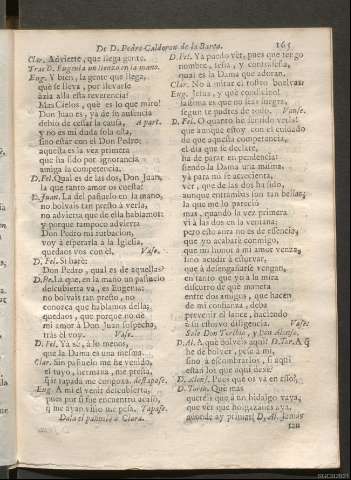 De D. Pedro Calderon de la Barca. 165
Clar. Advierte, que llega gente.
Tras D. Eugenia un lienzo en la mano.
Eug. Y bien, la gente que llega,
què se lleva, por llevarle
àzia allà esta reverencia?
Mas Cielos, què es lo que miro!
Don Juan es, yà de su ausencia
debiò de cessar la causa, à part.
y no es mi duda sola esta,
sino estàr con el Don Pedro;
aquesta es la vez primera
que ha sido por ignorancia
amiga la competencia.
D. Fel. Qual es de las dos, Don Juan,
la que tanto amor os cuesta?
D. Juan. La del pañuelo en la mano,
no bolvais tan presto à verla,
no advierta que de ella hablamos:
y porque tampoco advierta
Don Pedro mi turbacion,
voy à esperarla à la Iglesia,
quedaos vos con èl. Vase.
D. Fel. Si harè:
Don Pedro, qual es de aquellas?
D. Pe. La que en la mano un pañuelo
descubierta và, es Eugenia:
no bolvais tan presto, no
conozca que hablamos della;
quedaos, que porque no dè
mi amor à Don Juan sospecha,
tràs èl voy. Vase.
D. Fel. Yà sè, à lo menos,
que la Dama es una mesma.
Clar. Sin pañuelo me he venido,
el tuyo, hermana, me presta,
que tapada me compona. destapase.
Eug. A mi el venir descubierta,
pues por si fue encuentro acaso,
q̃ me ayan visto me pesa. Tapase.
Dale el pañuelo à Clara.
D. Fel. Yà puedo vèr, pues que tengo
nombre, seña, y contraseña,
qual es la Dama que adoran.
Clar. No à mirar el rostro buelvas.
Eug. Jesus, y què condicion!
lastima es que no seas suegra,
segun te pudres de todo. Vanse.
D. Fel. O quanto he sentido verla!
que aunque estoy con el cuidado
de que aquesta competencia,
el dia que se declare,
ha de parar en pendencia;
siendo la Dama una misma,
yà para mi se acrecienta,
vèr, que de las dos ha sido,
aunque entrambas son tan bellas,
la que me lo pareciò
mas, quando la vez primera
vì à las dos en la ventana;
pero esto aora no es de essencia,
que yo acabarè conmigo,
que mi honor à mi amor venza,
sino acudir à estorvar,
que à desengañarse vengan,
en tanto que yo à la mira
discurro de què manera
entre dos amigos, que hacen
de mi confianza, deba
prevenir el lance, haciendo
à su disgusto diligencia. Vase.
Sale Don Toribio, y Don Alonso.
D. Al. A què bolveis aqui? D. Tor. A q̃
he de bolver, pese à mi,
sino à descombrarlos, si aqui
estàn los que aqui dexè?
D. Alons. Pues què os và en esso?
D. Torib. Què mas
quereis que à un hidalgo vaya,
que vèr que holgazanes aya,
adonde ay primas? D. Al. Jamàs